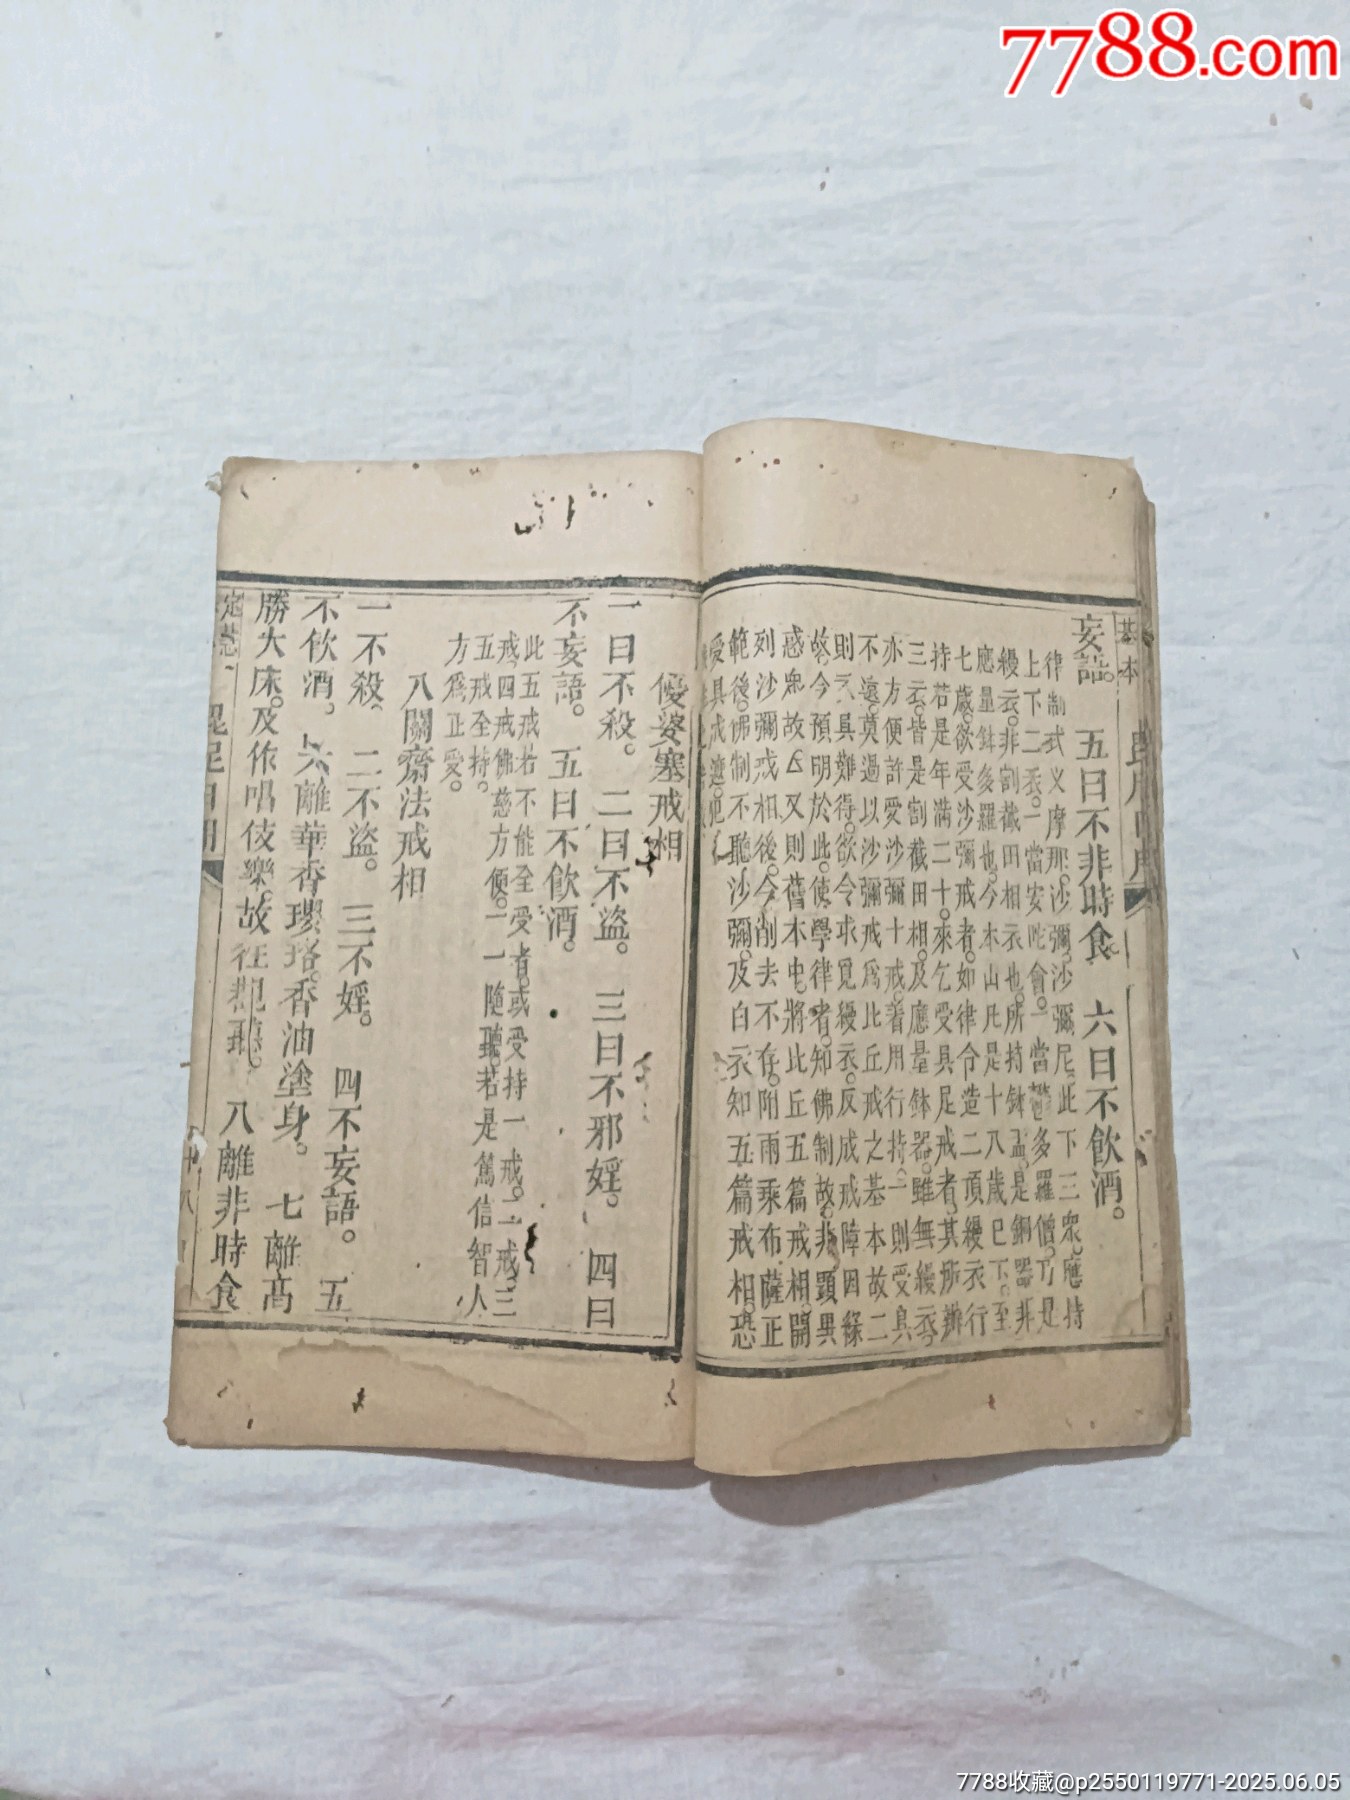 7788.com
妄語。 五曰不非時食。 六曰不飲酒。
律制式叉摩那。沙彌。沙彌尼。此下三衆。應持
上下二衣。一當安陀會。一當鬱多羅僧。乃是
縵衣。非割截田相衣也。所持鉢盂。是銅器非
應量鉢多羅也。今本山凡是十八歲已下。至
七歲。欲受沙彌戒者。如律令造二頂縵衣行
持若是年滿二十。來乞受具足戒者。其所辦
三衣。皆是割截田相。及應量鉢器。雖無縵衣。
亦方便許愛沙彌十戒。著用行持。一則受具
不遠。莫過以沙彌戒爲比丘戒之基本故。二
則衣具難得。欲令求覓縵衣。反成戒障因緣
故。今預明於此。使學律者。知佛制故。非顕異
惑衆故。又則舊本中。將此丘五篇戒相。開
列沙彌戒相後。今削去不存。附雨乘布薩正
範後。佛制不聽沙彌。及白衣知五篇戒相。恐
受具戒遺犯
優婆塞戒相
一曰不殺。 二曰不盜。 三曰不邪婬。 四曰
不妄語。 五曰不飲酒。
此五戒若不能全受者。或受持一戒。二戒。三
戒。四戒。佛慈方便。一一隨聽。若是篤信智人
五戒全持。
方爲正受。
八關齋法戒相
一不殺 二不盜。 三不婬。 四不妄語。 五
不飲酒。 六離華香瓔珞。香油塗身。 七離高
勝大床。及作唱伎樂。故往觀聽。 八離非時食
毘尼日用
7788收藏@p2550119771-2025.06.05